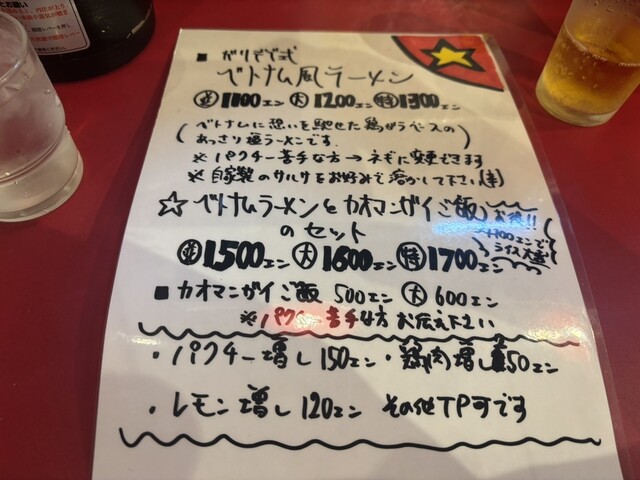 ■ ガリデブ式
ベトナム風ラーメン
並1100エン 大1200エン 特1300エン
(ベトナムに想いを馳せた鶏ガラベースの
あっさり塩ラーメンです。)
※パクチー苦手な方→ネギに変更できます
※自家製のサルサをお好みで溶かして下さい(辛)
☆ベトナムラーメンとカオマンガイご飯
のセット
お得!!
+100エンで
ライス大盛
並1500エン 大1600エン 特1700エン
■カオマンガイご飯 500エン 大600エン
※パクチー苦手な方お伝え下さい
・パクチー増し150エン ・鶏肉増し 50エン
・レモン増し120エン その他TP可です